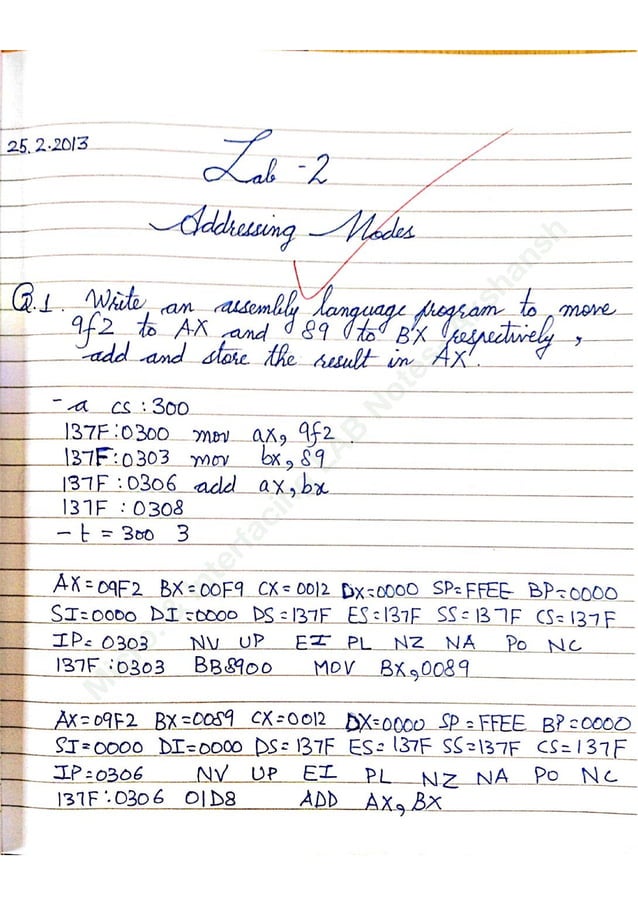 25.2.2013
Lab - 2
Addressing Modes
Q.1. Write an assembly language program to move
9f2 to AX and 89 to BX respectively,
add and store the result in AX.
- a cs:300
137F:0300 mov ax, 9f2.
137F:0303 mov bx, 89
137F:0306 add ax, bx
137F:0308
- t = 300 3
AX=09F2 BX=00F9 CX=0012 DX=0000 SP=FFEE BP=0000
SI=0000 DI=0000 DS=137F ES=137F SS=137F CS=137F
IP=0303 NV UP EI PL NZ NA PO NC
137F:0303 BB8900 MOV BX,0089
AX=09F2 BX=0089 CX=0012 DX=0000 SP=FFEE BP=0000
SI=0000 DI=0000 DS=137F ES=137F SS=137F CS=137F
IP=0306 NV UP EI PL NZ NA PO NC
137F:0306 01D8 ADD AX,BX
LAB Notes